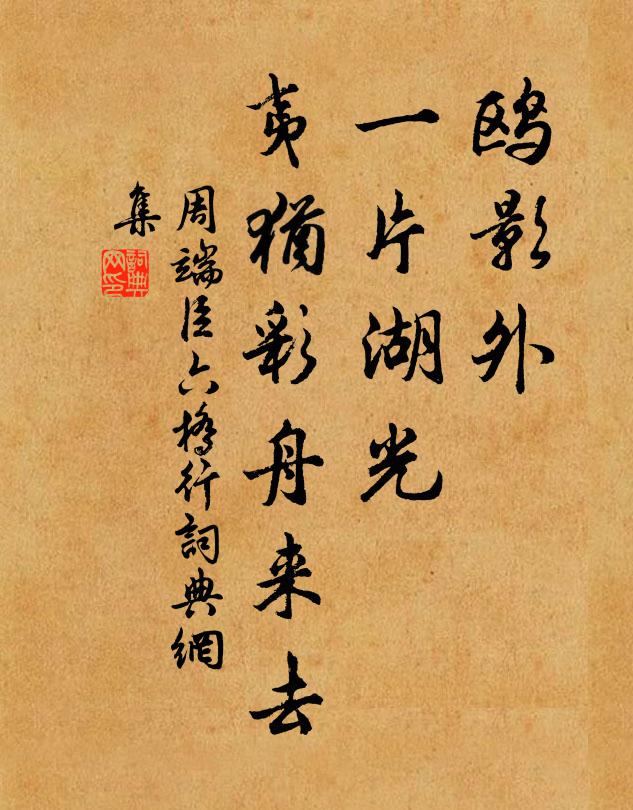 鸥影外
一片湖光
夷犹彩舟来去
周端臣六桥行詞典網
集
詞典网印